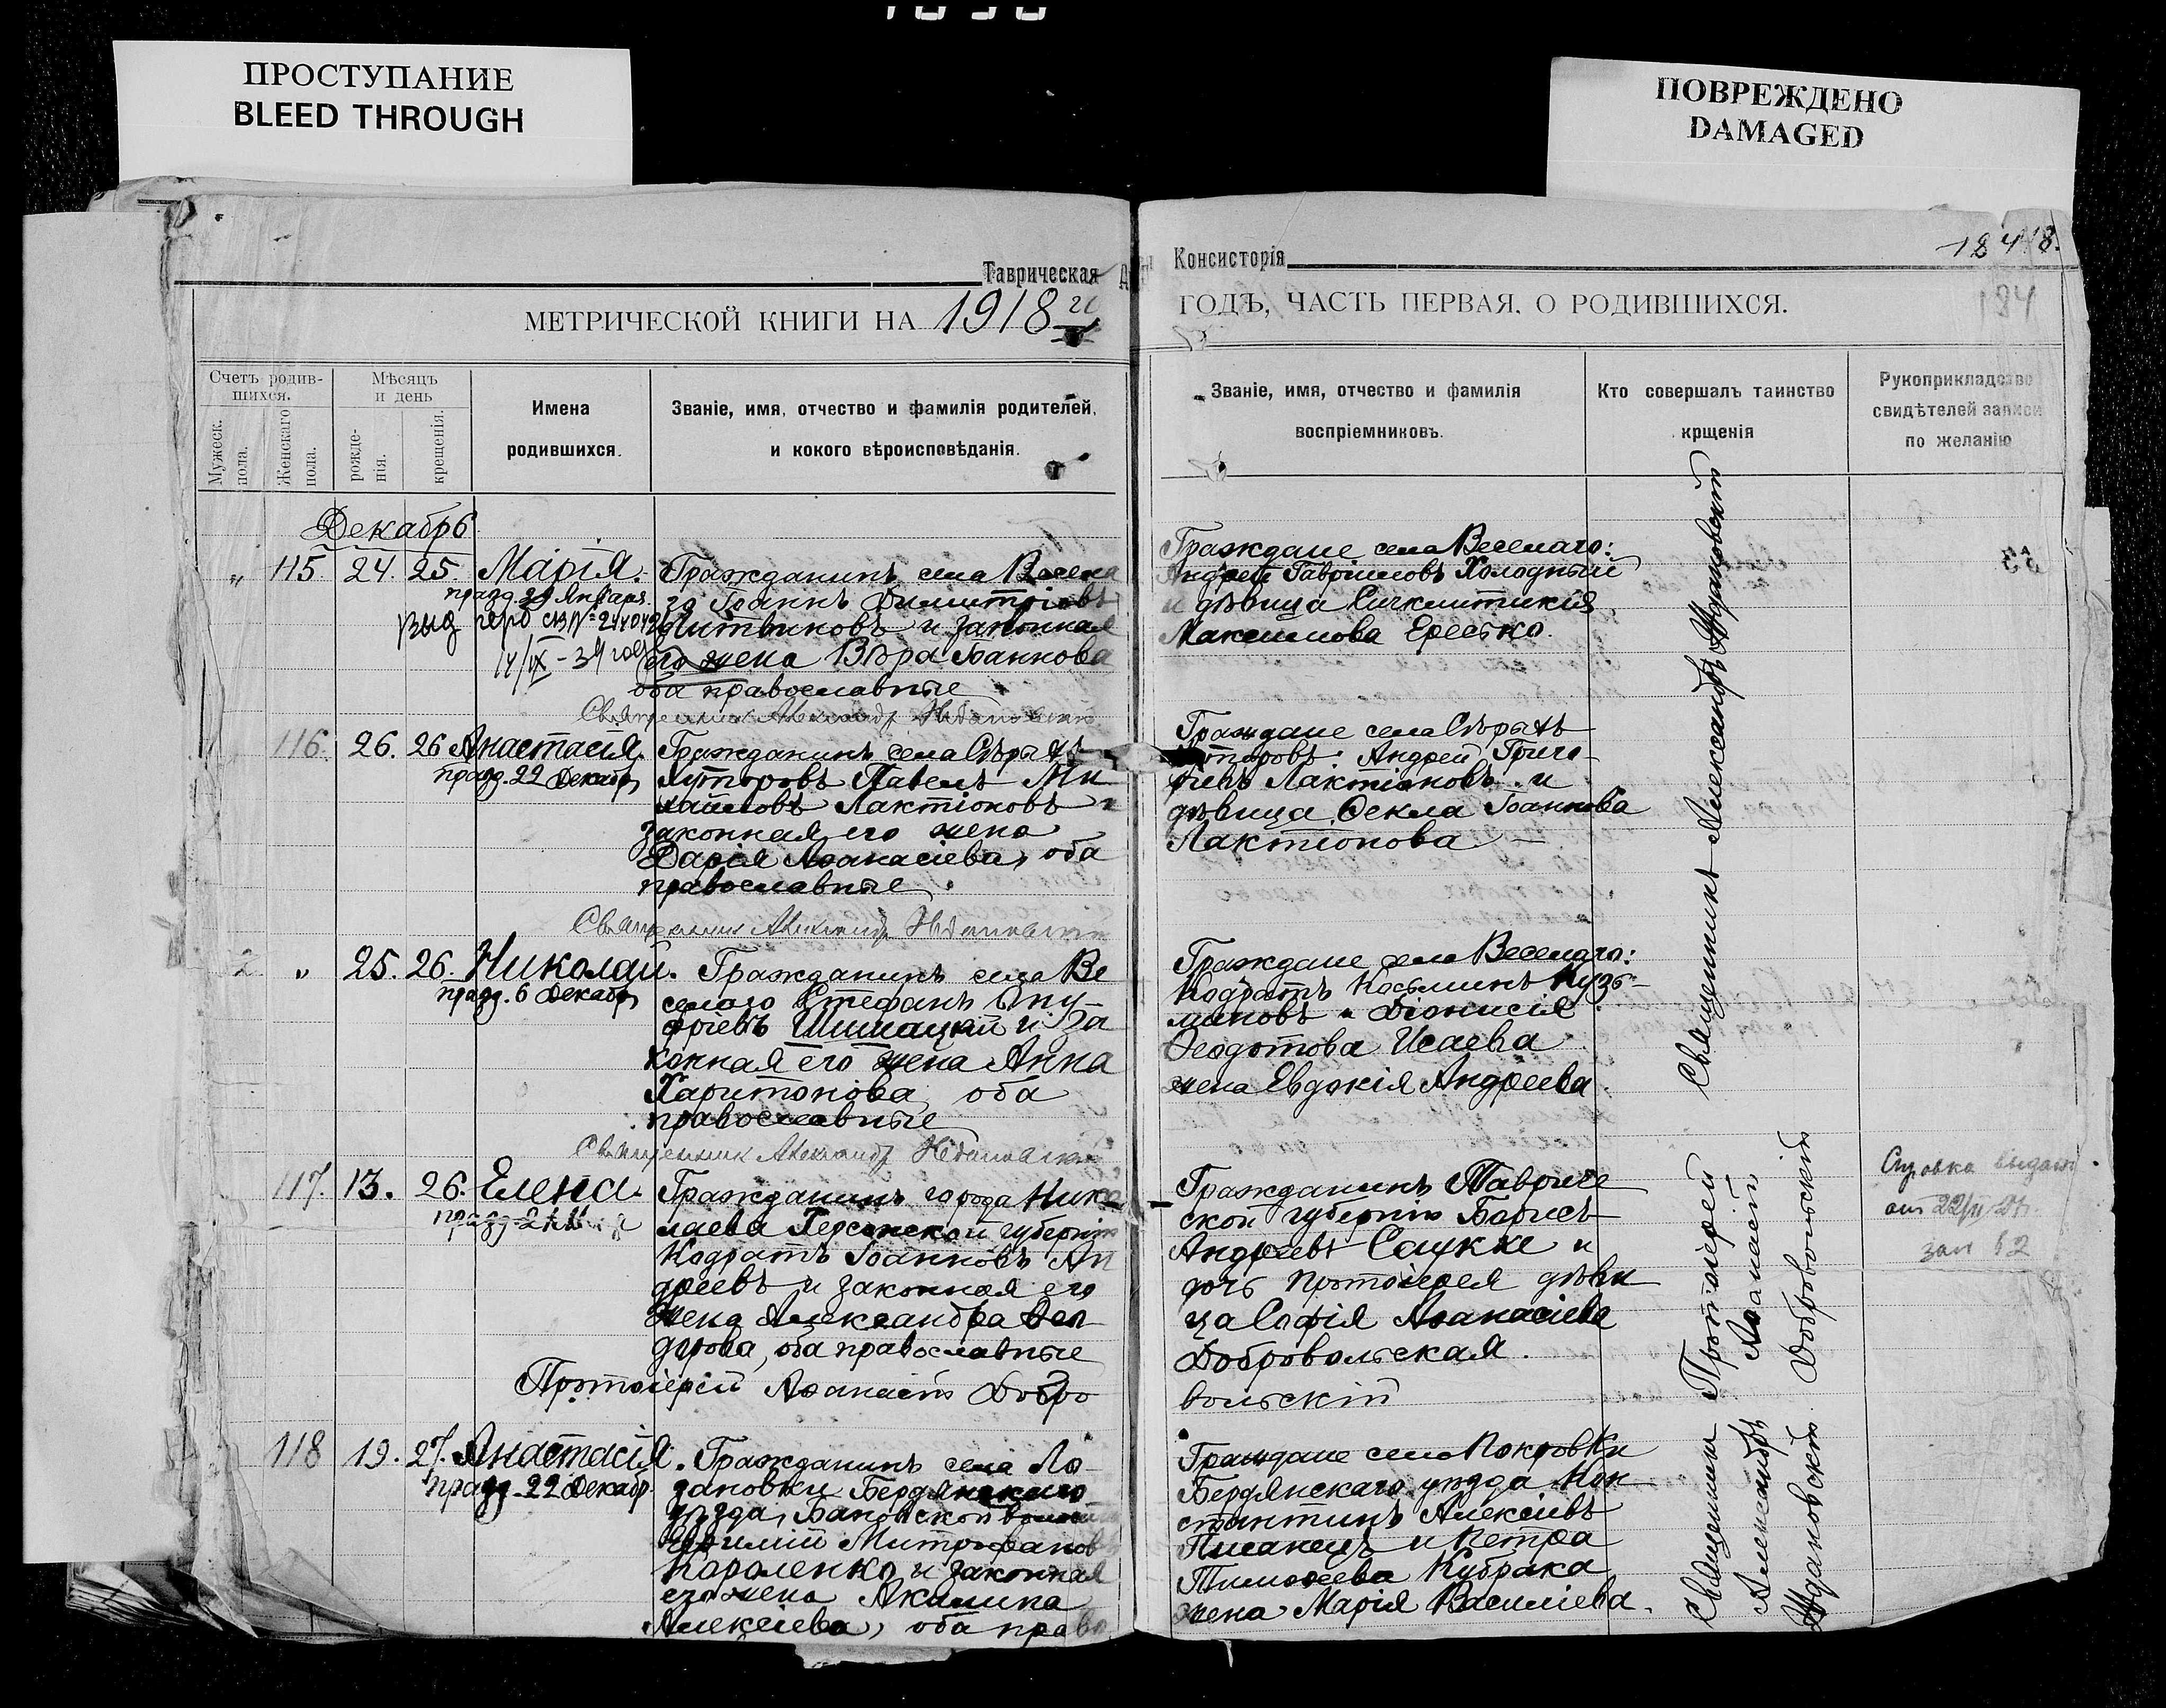 ПРОСТУПАНИЕ
BLEED THROUGH
ПОВРЕЖДЕНО
DAMAGED
Таврическая
Консисторія
184
184
МЕТРИЧЕСКОЙ КНИГИ НА 1918
ГОДЪ, ЧАСТЬ ПЕРВАЯ, О РОДИВШИХСЯ.
Счетъ родив-
шихся.
Мужеск.
пола.
Женскаго
пола.
Мѣсяцъ
и день
рожде-
нія.
крещенія.
Имена
родившихся.
Званіе, имя, отчество и фамилія родителей,
и кокого вѣроисповѣданія.
Званіе, имя, отчество и фамилія
воспріемниковъ.
Кто совершалъ таинство
крщенія
Рукоприкладство
свидѣтелей записи
по желанію
Декабрь
" 115. 24. 25. Марія.
празд. 29 Января.
выд
14/IX - 34
Гражданинъ села Весела
го Іоаннъ Димитріевъ
Литвиновъ и законная
его жена Вѣра Іоаннова
оба православные
Священник Александр Ждановский
Граждане села Веселаго:
Андрей Гавріиловъ Холодный
и дѣвица
Максимова
116. 26. 26 Анастасія.
празд. 22 Декабр
Гражданинъ села Сѣрыхъ
хуторовъ Павелъ Ми
хаиловъ Лактіоновъ и
законная его жена
Дарія Аѳанасіева, оба
православные.
Священник Александр Ждановский
Граждане села Сѣрыхъ
хуторовъ: Андрей Григо-
Лактіоновъ и
дѣвица Ѳекла Іоаннова
Лактіонова
2 " 25. 26. Николай.
празд. 6 Декабр
Гражданинъ села Ве
селаго Стефанъ Ону-
фріевъ Шишацкій и за
конная его жена Анна
Харитонова оба
православные
Священник Александр Ждановский
Граждане села Веселаго:
Кодратъ Косминъ Кузь-
миновъ и Діонисія
Ѳеодотова Исаева
жена Евдокія Андреева.
Священникъ Александръ Ждановскій
117. 13. 26. Елена.
празд. 21
Гражданинъ города Нико
лаева Херсонской губерніи
Кодратъ Іоанновъ Ан
дреевъ и законная его
жена Александра Ѳео
дорова, оба православные
Протоіерей Аѳанасій Добро
вольскій
Гражданинъ Тавриче
ской губерніи Борисъ
Андреевъ и
дочь протоіерея дѣви
ца Софія Аѳанасіева
Добровольская.
Протоіерей
Аѳанасій
Добровольскій
Справка выдан
зап 62
118 19. 27. Анастасія.
празд. 22 Декабр.
Гражданинъ села Ло
зановки Бердянскаго
уѣзда,
Митрофановъ
Короленко и законная
его жена Акилина
Алексіева, оба право
Граждане села Покровки
Бердянскаго уѣзда Кон
стантинъ Алексіевъ
и Петра
Тимоѳеева Кубрака
жена Марія Василіева.
Священникъ
Александръ
Ждановскій